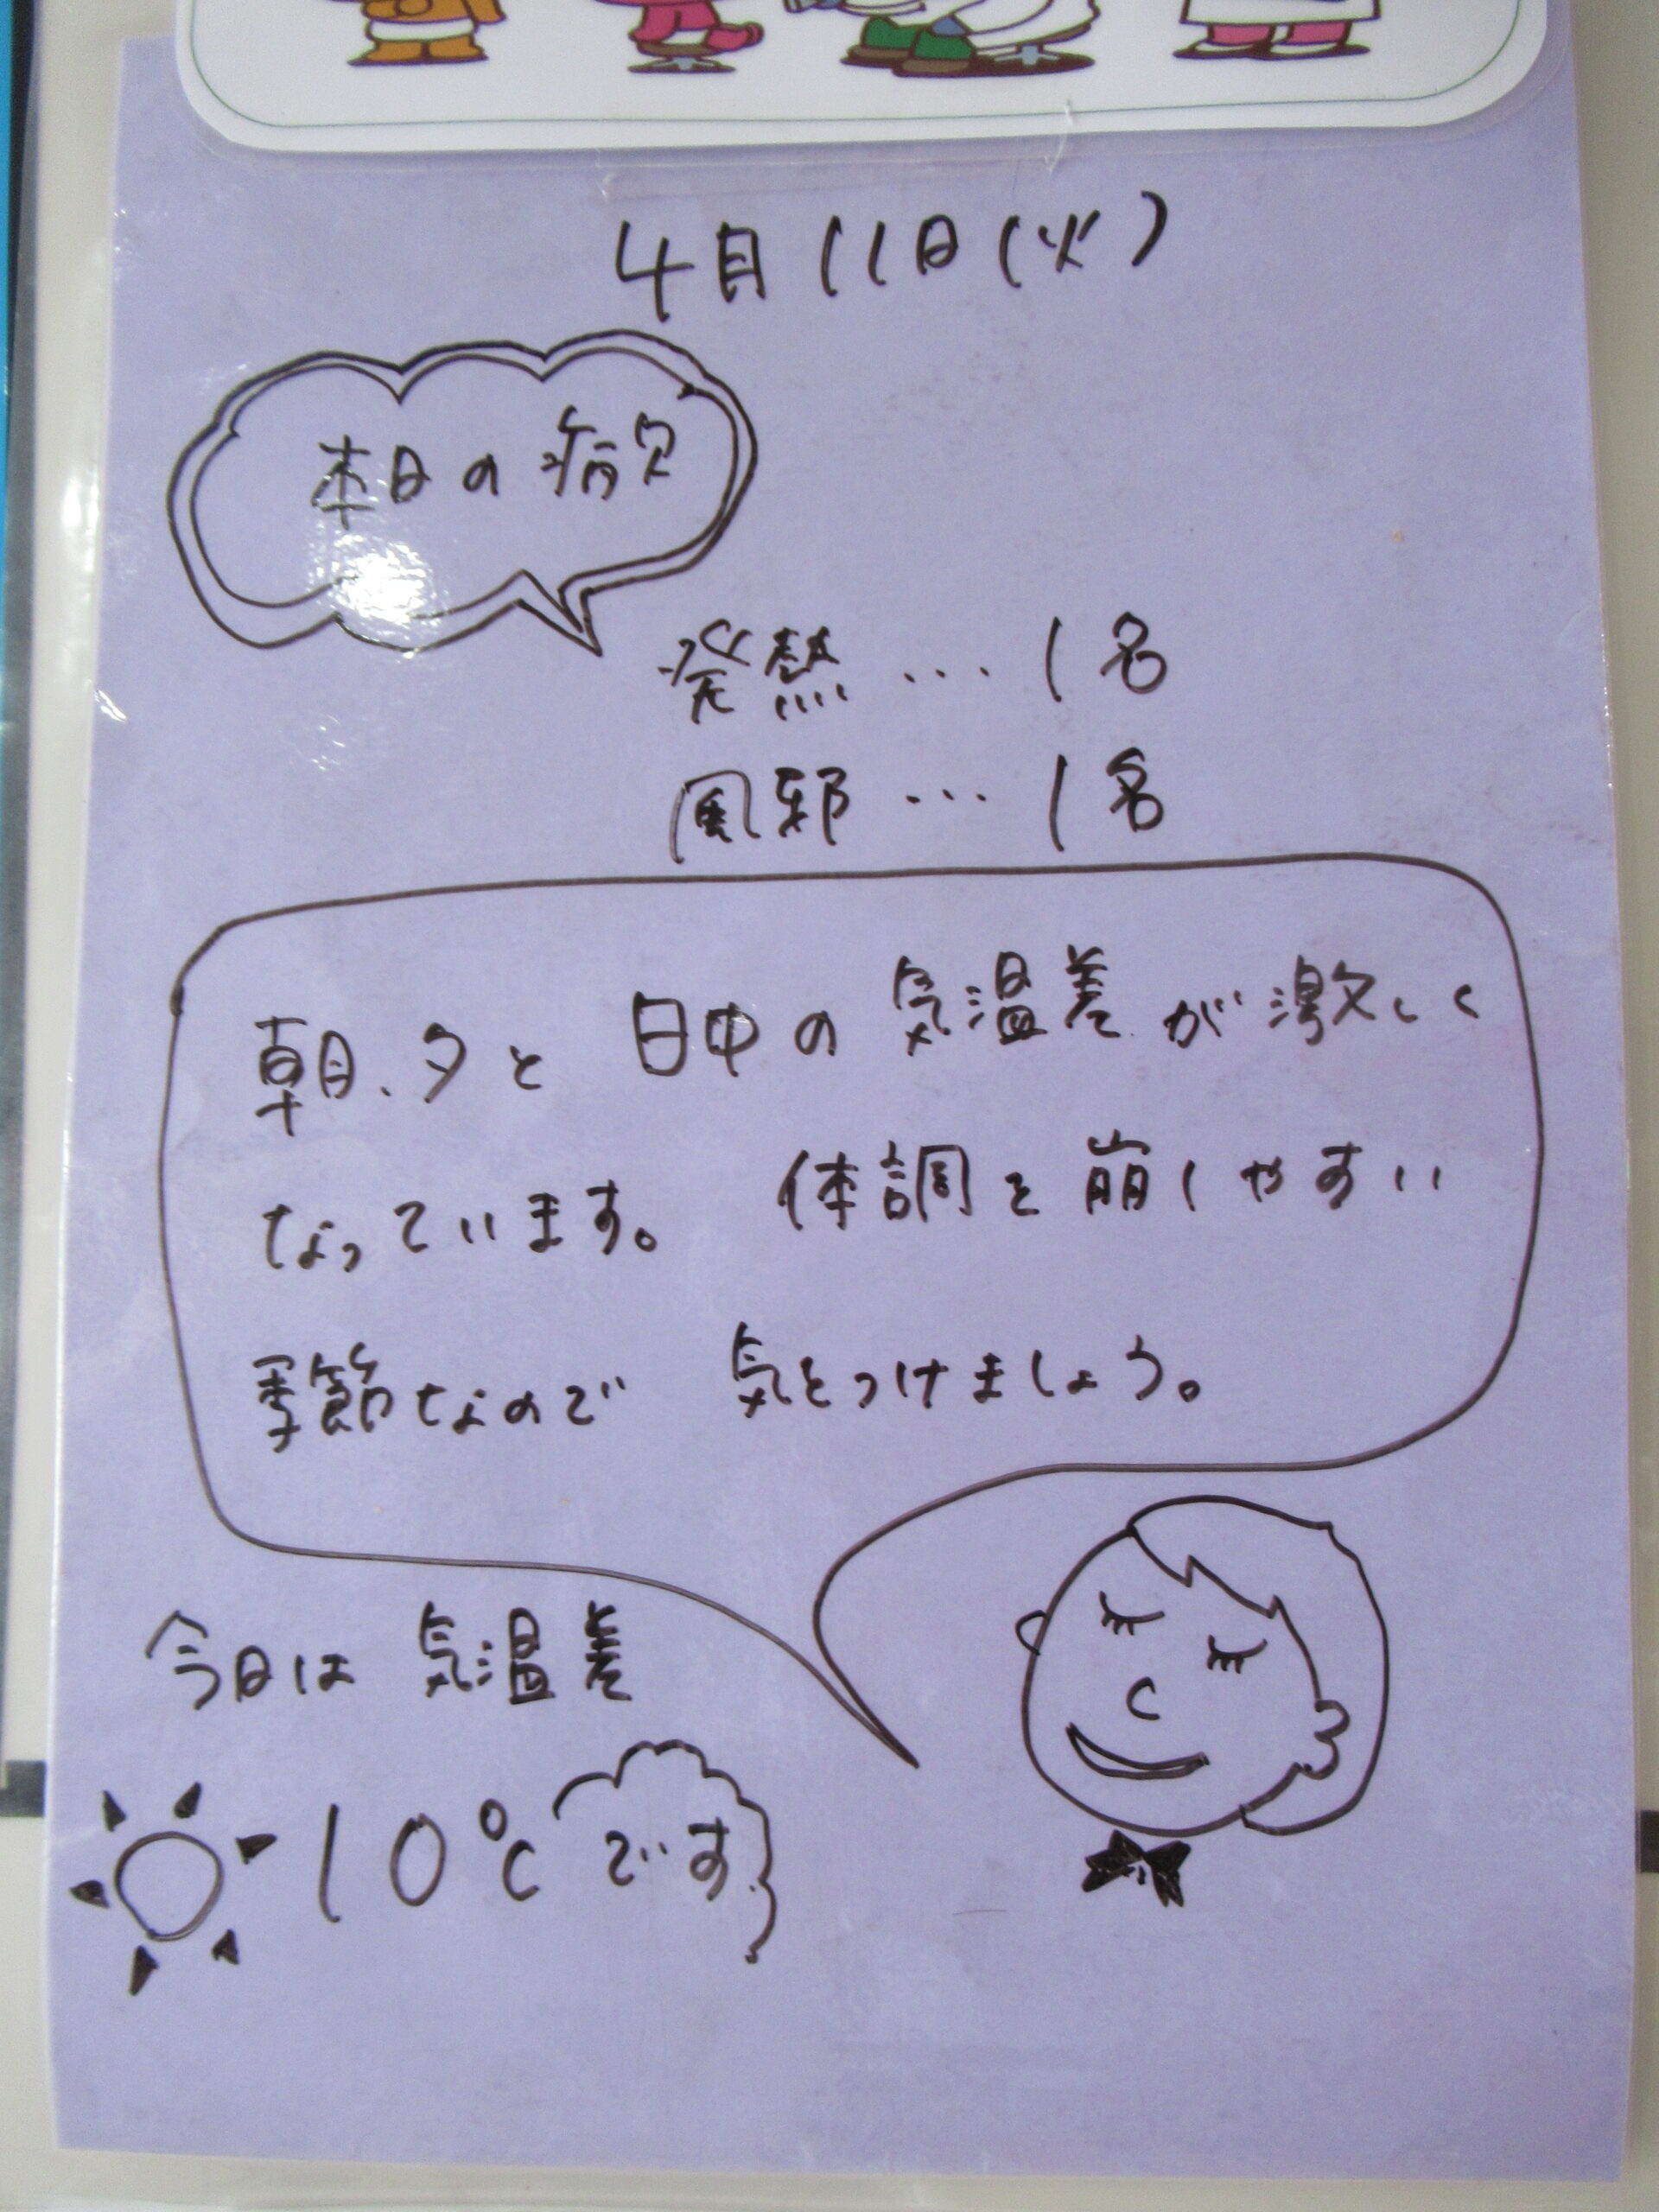 4月11日(火)
本日の病欠
発熱…1名
風邪…1名
朝、夕と 日中の気温差が激しく
なっています。 体調を崩しやすい
季節なので 気をつけましょう。
今日は 気温差
10℃です